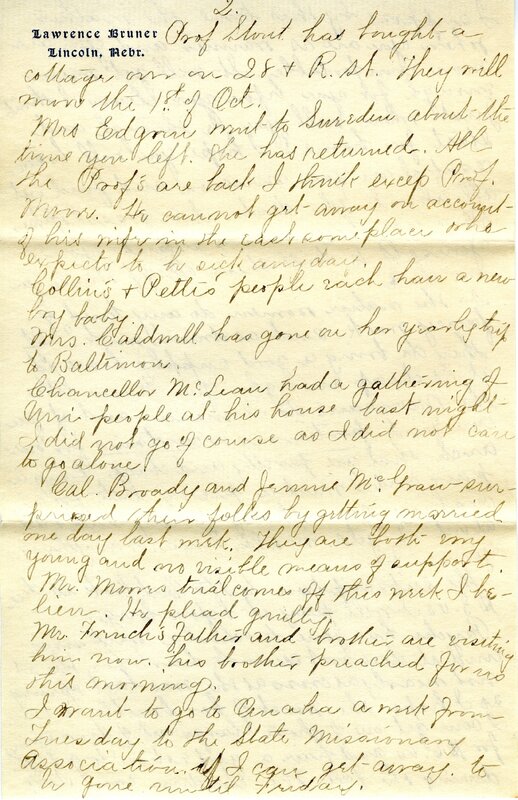 2.
Lawrence Bruner
Lincoln, Nebr.
Prof Stout has bought a
cottage over on 28 + R. st. They will
move the 1st of Oct.
Mrs Edgren went to Sweden about the
time you left. She has returned. All
the Prof's are back I think excep Prof.
Moon. He cannot get away on account
of his wife in the east someplace who
expects to be sick any day.
Collins + Pettis people each have a new
boy baby.
Mrs. Caldwell has gone on her yearly trip
to Baltimore.
Chancellor McLean had a gathering of
Uni people at his house last night
I did not go of course as I did not care
to go alone.
Cal. Broady and Jennie McGraw sur-
prised their folks by getting married
one day last week. They are both very
young and no visible means of support.
Mr. Mores trial comes off this week I be-
lieve. He plead guilty
Mr. French's Father and brother are visiting
him now. his brother preached for us
this morning.
I want to go to Omaha a week from
Tuesday to the State Missionary
Association. if I can get away. to
be gone until Friday.